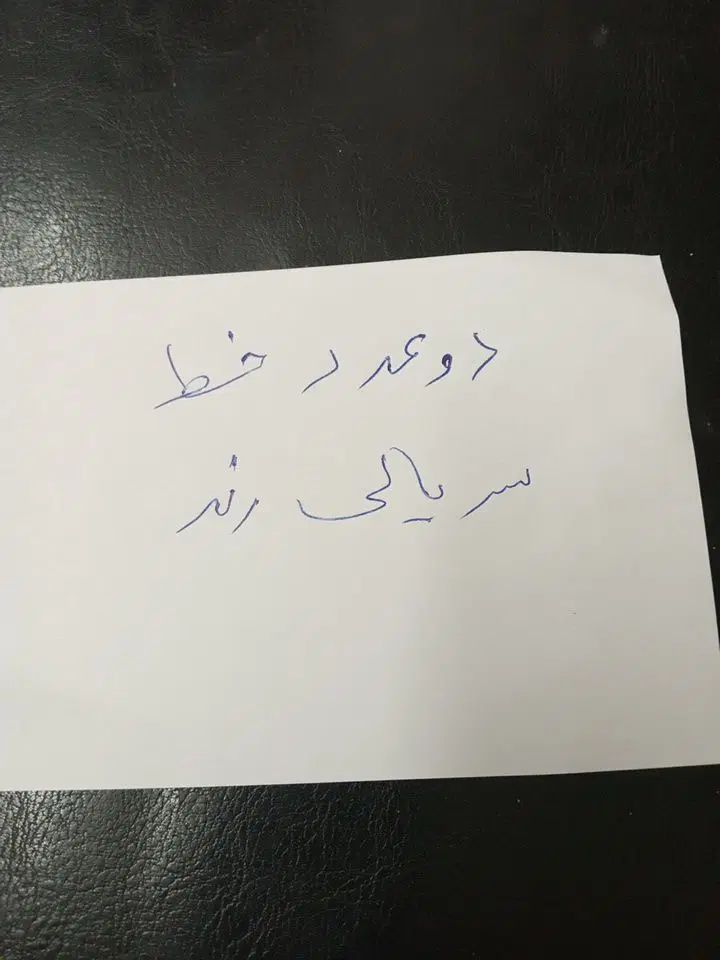 دو عدد خط
سریالی رند